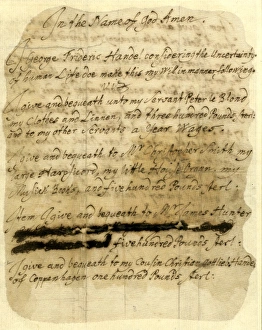 In the Name of God Amen.
I George Frideric Handel considering the Uncertainty
of human Life doe make this my Will in manner following
viz.
I give and bequeath unto my Servant Peter le Blond
my Clothes and Linnen, and three hundred Pounds, sterl:
and to my other Servants a Year Wages.
I give and bequeath to Mr Christopher Smith my
large Harpsicord, my little House Organ, my
Musick Books, and five hundred Pounds sterl:
Item I give and bequeath to Mr James Hunter
five hundred Pounds, sterl:
I give and bequeath to my Cousin Christian Gottlieb Handel
of Coppenhagen one hundred Pounds, sterl: